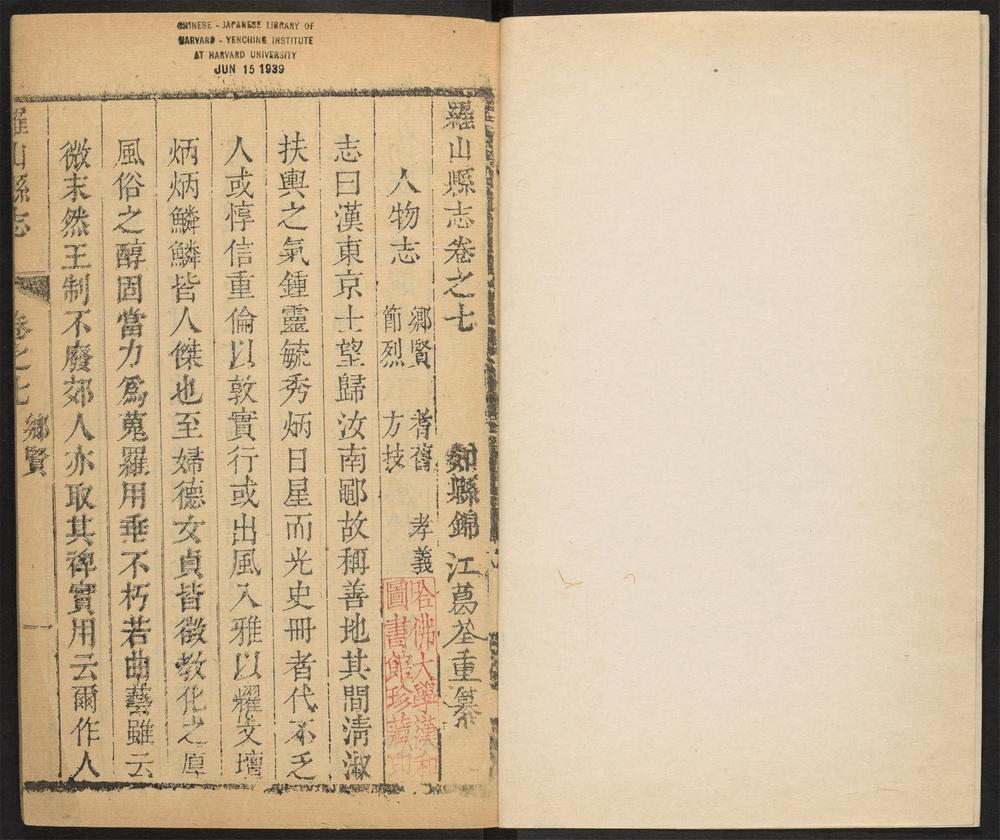 CHINESE - JAPANESE LIBRARY OF
HARVARD - YENCHING INSTITUTE
AT HARVARD UNIVERSITY
JUN 15 1939
羅山縣志卷之七
郟縣錦江葛荃重纂
人物志
鄉賢 耆舊 孝義
節烈 方技
哈佛大學漢和
圖書館珍藏印
志曰漢東京士望歸汝南鄳故稱善地其間清淑
扶輿之氣鍾靈毓秀炳日星而光史冊者代不乏
人或惇信重倫以敦實行或出風入雅以耀文壇
炳炳鱗鱗皆人傑也至婦德女貞皆徵教化之厚
風俗之醇固當力爲蒐羅用垂不朽若曲藝雖云
微末然王制不廢郊人亦取其裨實用云爾作人
羅山縣志
卷之七
鄉賢
一